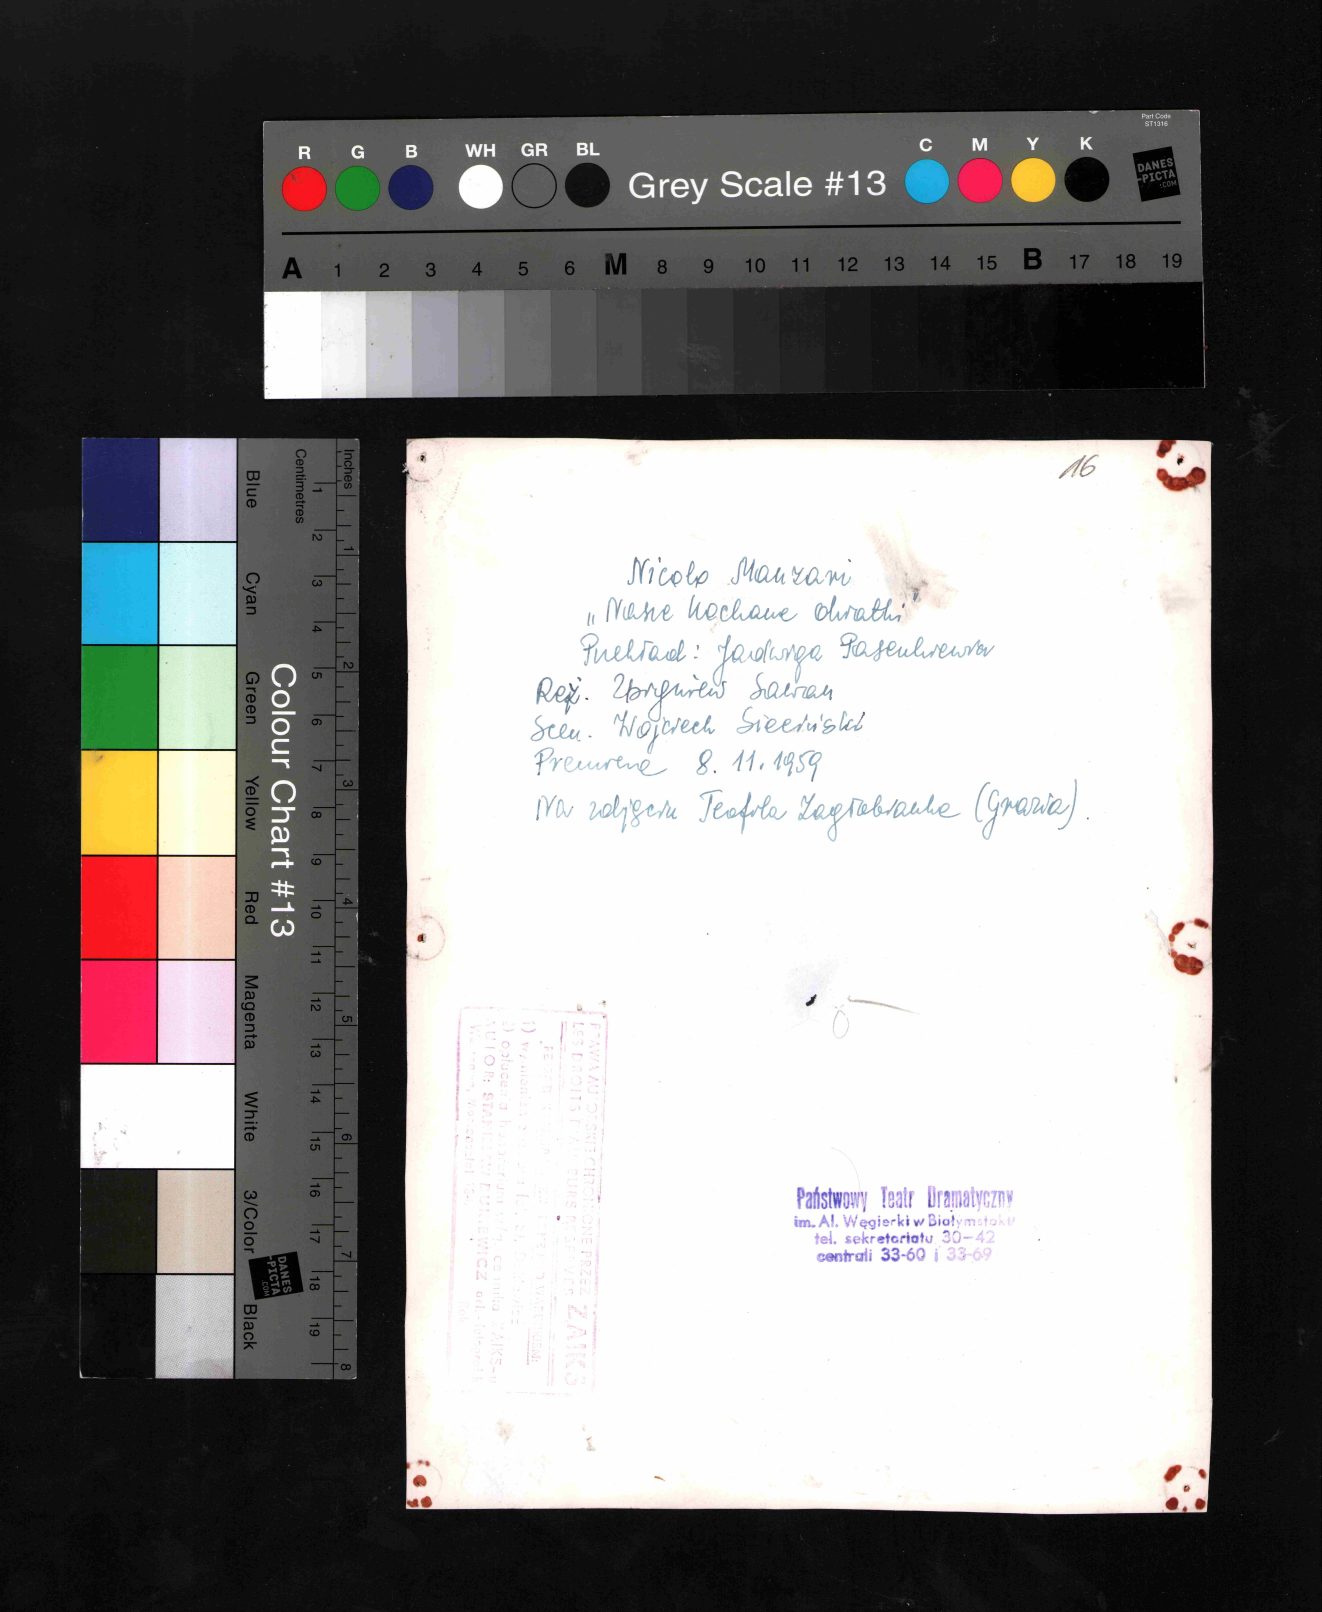 Part Code
ST1316
R G B WH GR BL Grey Scale #13 C M Y K
DANES
-PICTA
.COM
A 1 2 3 4 5 6 M 8 9 10 11 12 13 14 15 B 17 18 19
Colour Chart #13
Blue
Cyan
Green
Yellow
Red
Magenta
White
3/Color
Black
Centimetres
1 2 3 4 5 6 7 8 9 10 11 12 13 14 15 16 17 18 19
Inches
1 2 3 4 5 6 7 8
DANES
-PICTA
.COM
16
Nicolo Manzari
„Nasze kochane dziatki"
Przekład: Jadwiga Pasenkiewicz
Reż. Zbigniew Sawan
Scen. Wojciech Sieciński
Premiera 8. 11. 1959
Na zdjęciu Teofila Zagłobianka (Grazia).
PRAWA AUTORSKIE CHRONIONE PRZEZ ZAIKS
LES DROITS D'AUTEURS RESERVES
AUTOR: STANISŁAW
Państwowy Teatr Dramatyczny
im. Al. Węgierki w Białymstoku
tel. sekretariatu 30-42
centrali 33-60 i 33-69